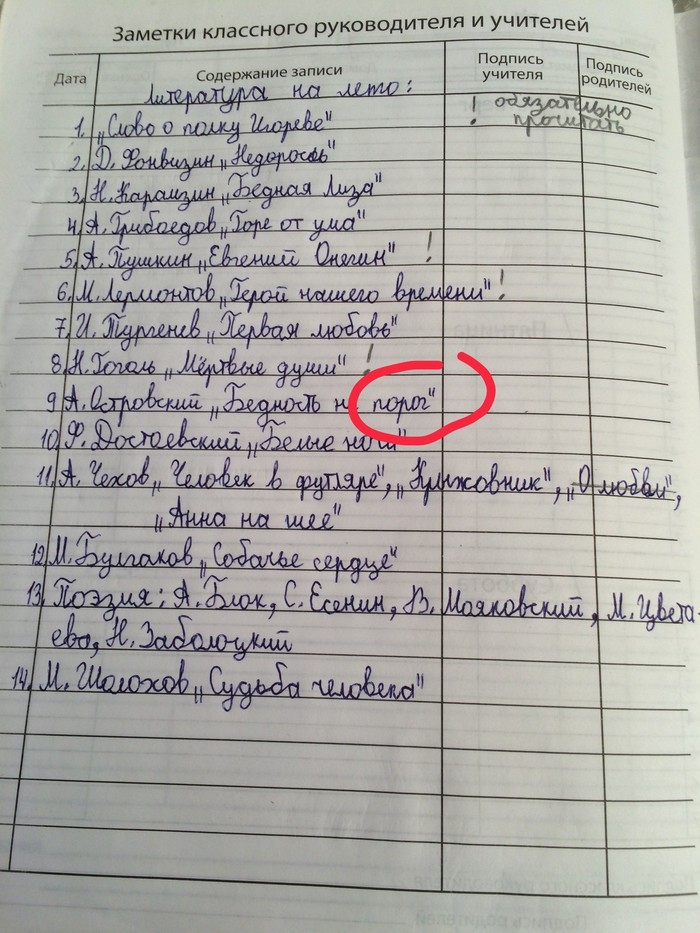 Заметки классного руководителя и учителей
Дата Содержание записи Подпись учителя Подпись родителей
Литература на лето:
! обязательно
! прочитать
1. „Слово о полку Игореве"
2. Д. Фонвизин „Недоросль"
3. Н. Карамзин „Бедная Лиза"
4. А. Грибоедов „Горе от ума"
5. А. Пушкин „Евгений Онегин" !
6. М. Лермонтов „Герой нашего времени" !
7. И. Тургенев „Первая любовь"
8. Н. Гоголь „Мёртвые души" !
9 А. Островский „Бедность не порог"
10. Ф. Достоевский „Белые ночи"
11. А. Чехов „Человек в футляре", „Крыжовник", „О любви",
„Анна на шее"
12. М. Булгаков „Собачье сердце"
13. Поэзия: А. Блок, С. Есенин, В. Маяковский, М. Цвета-
ева, Н. Заболоцкий
14. М. Шолохов „Судьба человека"